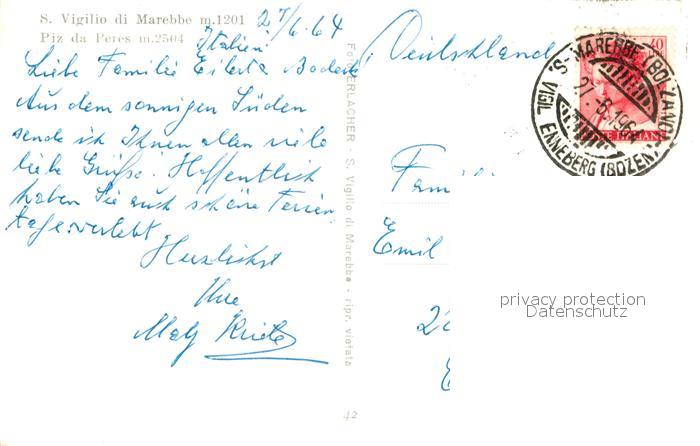 S. Vigilio di Marebbe m.1201
Piz da Peres m.2504
27/6.64
Italien
Liebe Familie Eilert
Aus dem sonnigen Süden
sende ich Ihnen allen viele
liebe Grüße. Hoffentlich
haben Sie auch schöne Ferien
tage verlebt.
Herzlichst
Ihre
Foto ERLACHER S. Vigilio di Marebbe - ripr. vietata
42
Deutschland
S. MAREBBE (BOLZANO)
VIGIL ENNEBERG (BOZEN)
40
Fami
Emil
privacy protection
Datenschutz